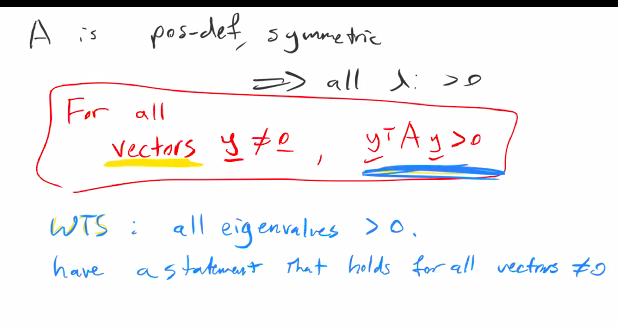 A is pos-def, symmetric
⟹ all λi >0
For all
vectors y ≠ 0 , yᵀA y > 0
WTS : all eigenvalues > 0.
have a statement that holds for all vectors ≠0